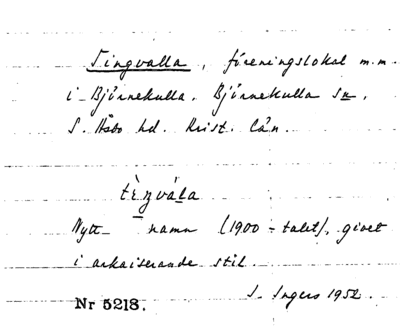 Tingvalla, föreningslokal m.m.
i Björnekulla. Björnekulla sn,
S. Åsbo hd. Krist. län.
tèŋvála
Nytt namn (1900-talet), givet
i arkaiserande stil.
Nr 5218. S. Ingers 1952.